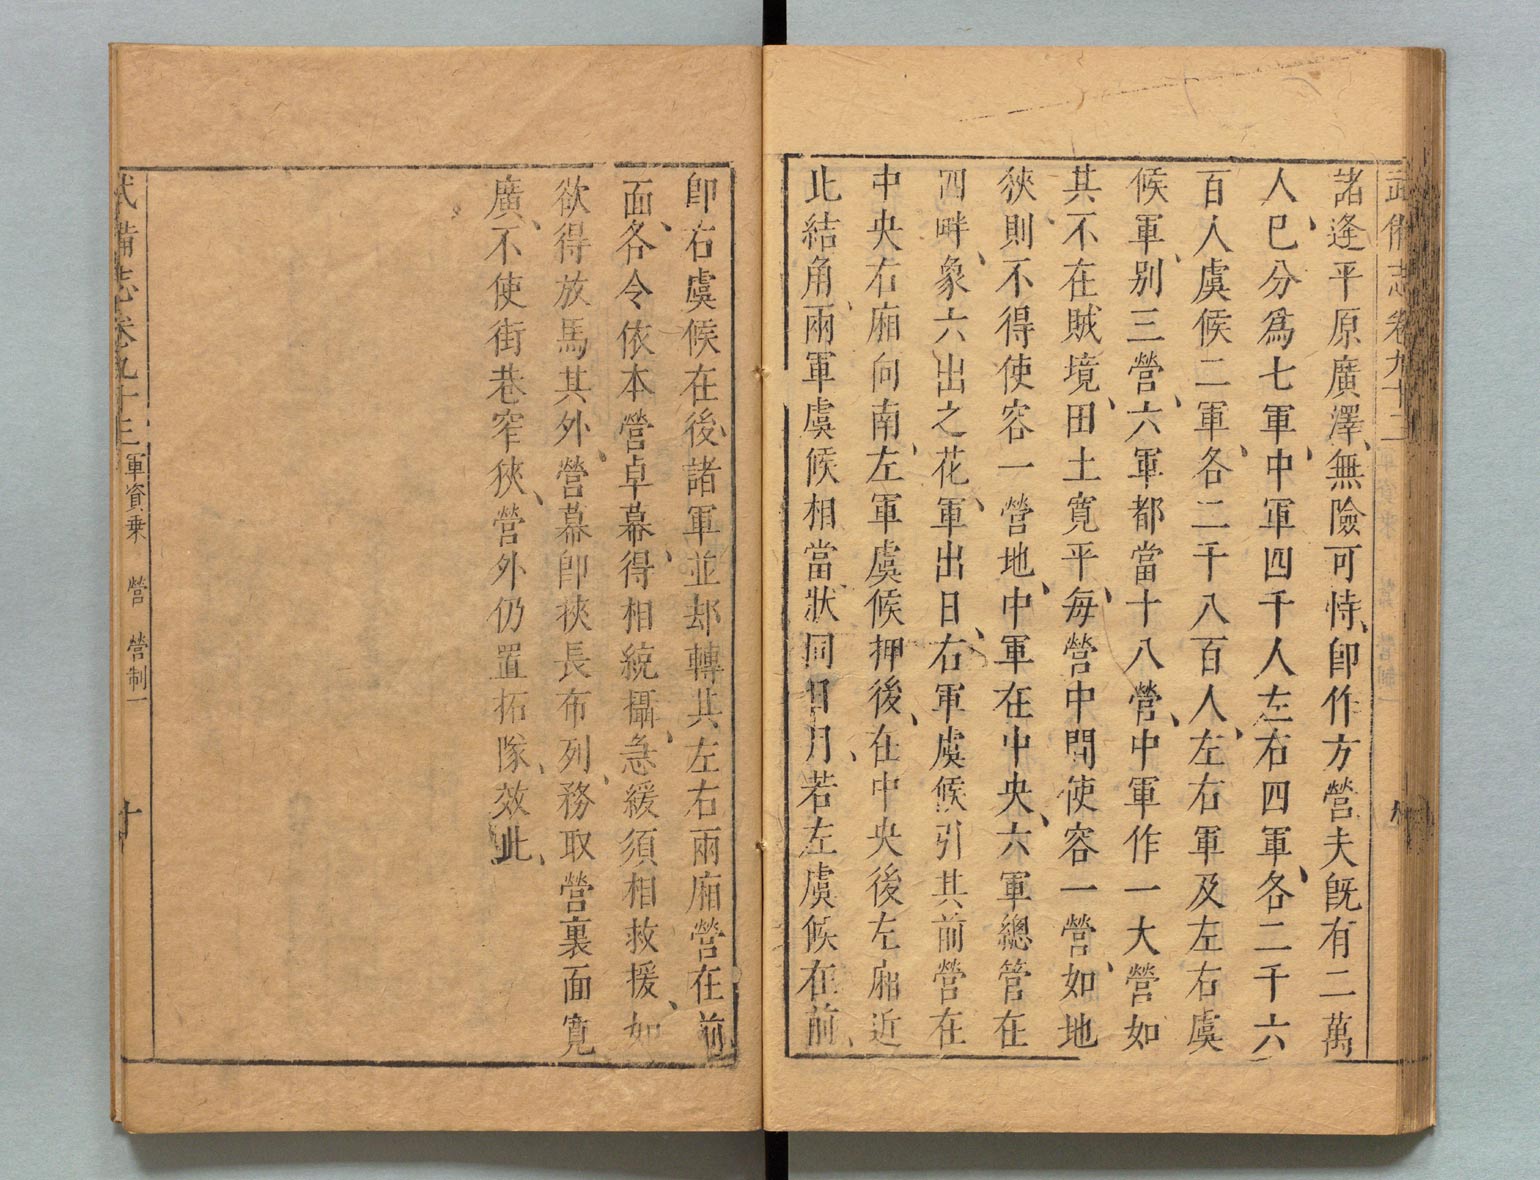 諸逢平原廣澤、無險可恃、卽作方營夫旣有二萬
人、已分爲七軍、中軍四千人左右四軍、各二千六
百人虞候二軍、各二千八百人、左右軍及左右虞
候軍、別三營、六軍都當十八營、中軍作一大營如
其不在賊境、田土寛平、毎營中間使容一營、如地
狹、則不得使容一營地、中軍在中央、六軍總管在
四畔、象六出之花、軍出日、右軍虞候引其前營在
中央右廂向南、左軍虞候押後、在中央後左廂近
北結角、兩軍虞候相當、狀同日月、若左虞候在前、
卽右虞候在後、諸軍並却轉其左右兩廂營在前
面、各令依本營卓幕、得相統攝、急緩須相救援、如
欲得放馬其外、營幕卽狹長布列、務取營裏面寛
廣、不使街巷窄狹、營外仍置拓隊、效此、
武備志卷九十三 軍資乗 營 營制一 十